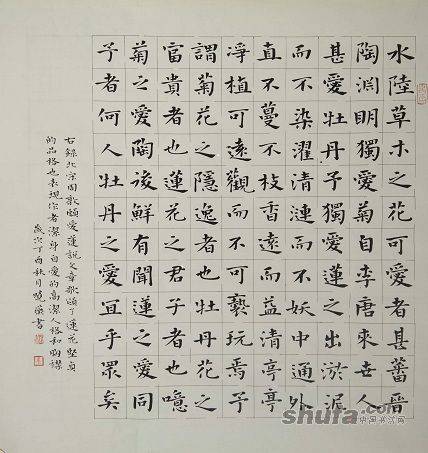 水陸草木之花可愛者甚蕃晉
陶淵明獨愛菊自李唐來世人
甚愛牡丹予獨愛蓮之出淤泥
而不染濯清漣而不妖中通外
直不蔓不枝香遠而益清亭亭
淨植可遠觀而不可褻玩焉予
謂菊花之隱逸者也牡丹花之
富貴者也蓮花之君子者也噫
菊之愛陶後鮮有聞蓮之愛同
予者何人牡丹之愛宜乎眾矣
右錄北宗周敦頤愛蓮說文章歌頌了蓮花堅貞
的品格也表現作者潔身自愛的高潔人格和胸襟
歲次丁酉秋月書
shufa.com
中国书法网